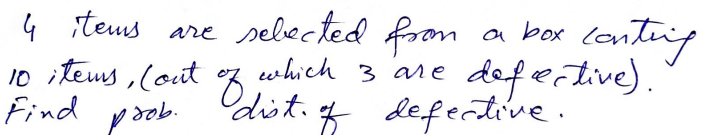 4 items are selected from a box conting
10 items, (out of which 3 are defective).
Find prob. dist. of defective.